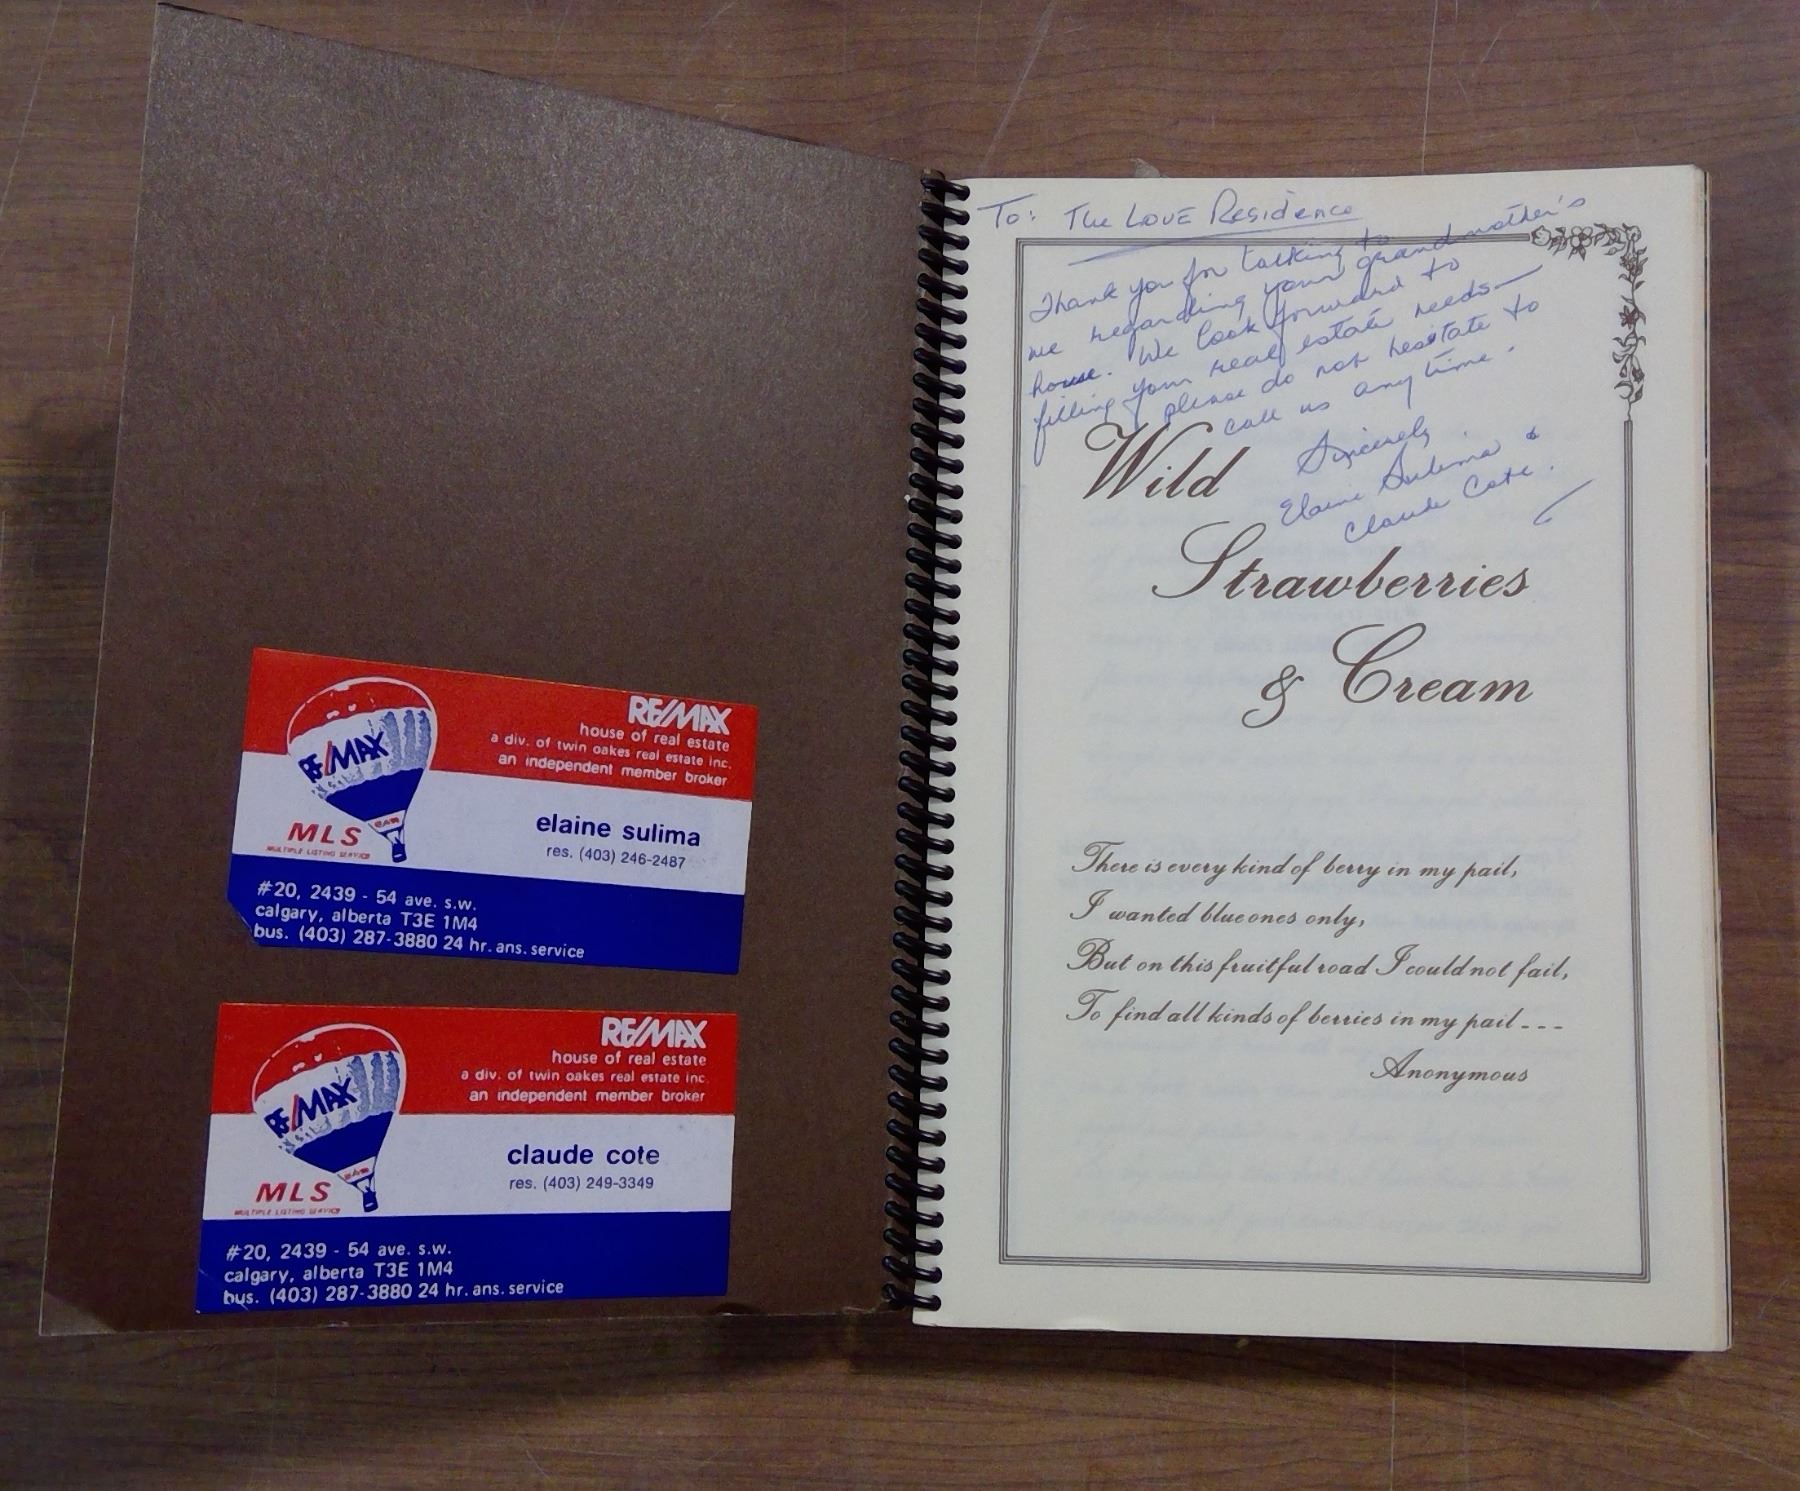 RE/MAX
house of real estate
a div. of twin oakes real estate inc.
an independent member broker
RE/MAX
MLS
MULTIPLE LISTING SERVICE
elaine sulima
res. (403) 246-2487
#20, 2439 - 54 ave. s.w.
calgary, alberta T3E 1M4
bus. (403) 287-3880 24 hr. ans. service
RE/MAX
house of real estate
a div. of twin oakes real estate inc.
an independent member broker
RE/MAX
MLS
MULTIPLE LISTING SERVICE
claude cote
res. (403) 249-3349
#20, 2439 - 54 ave. s.w.
calgary, alberta T3E 1M4
bus. (403) 287-3880 24 hr. ans. service
To: The LOVE Residence
Thank you for talking to
me regarding your grandmother's
house. We look forward to
filling your real estate needs—
please do not hesitate to
call us any time.
Sincerely
Elaine Sulima &
Claude Cote.
Wild
Strawberries
& Cream
There is every kind of berry in my pail,
I wanted blue ones only,
But on this fruitful road I could not fail,
To find all kinds of berries in my pail - - -
Anonymous